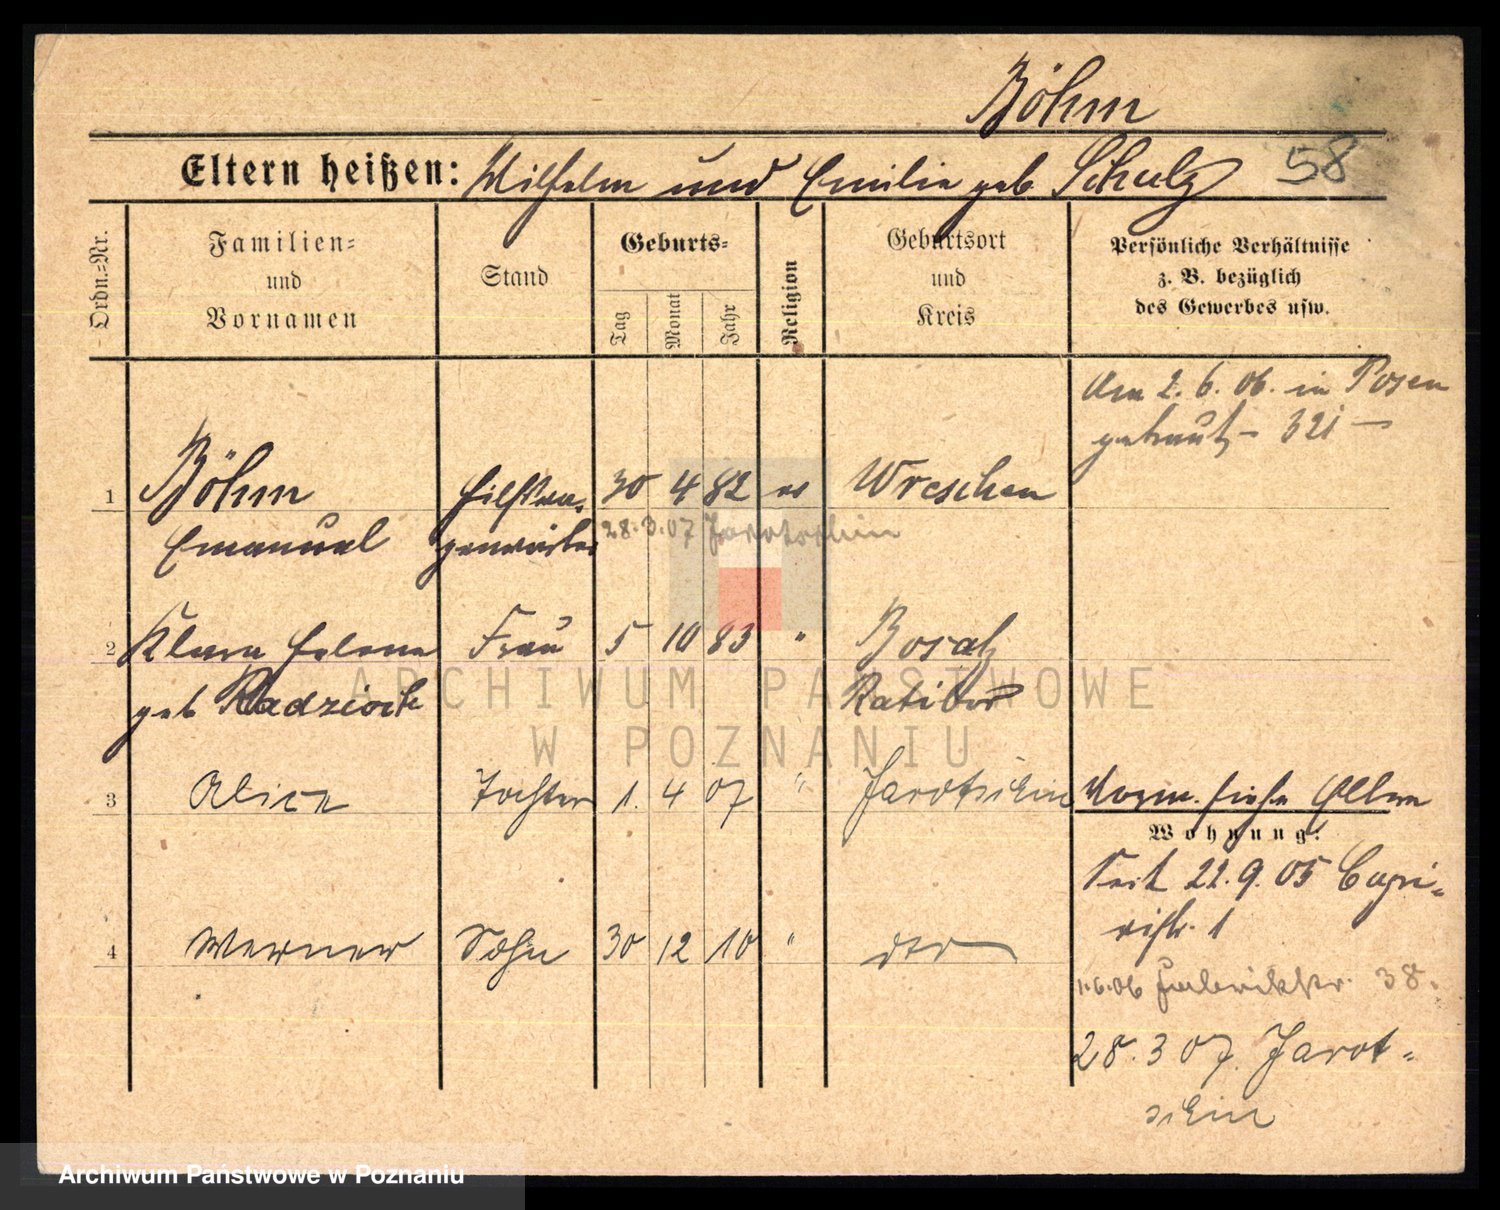 Böhm
Eltern heißen: Wilhelm und Emilie geb Schulz 58
Ordn.=Nr.
Familien=
und
Vornamen
Stand
Geburts=
Tag
Monat
Jahr
Religion
Geburtsort
und
Kreis
Persönliche Verhältnisse
z. B. bezüglich
des Gewerbes usw.
Am 2. 6. 06. in Posen
getraut – 321 –
1 Böhm 30 4 82 ev Wreschen
Emanuel 28.3.07 Jarotschin
2 Klara Helene Frau 5 10 83 " Bosatz
geb Radzioch Ratibor
ARCHIWUM PAŃSTWOWE
W POZNANIU
3 Alice Tochter 1. 4 07 " Jarotschin
siehe Eltern
Wohnung:
Seit 22.9.05 Capri=
vistr. 1
4 Werner Sohn 30 12 10 " dto
1.6.06 38.
28.3 07. Jarot=
schin
Archiwum Państwowe w Poznaniu